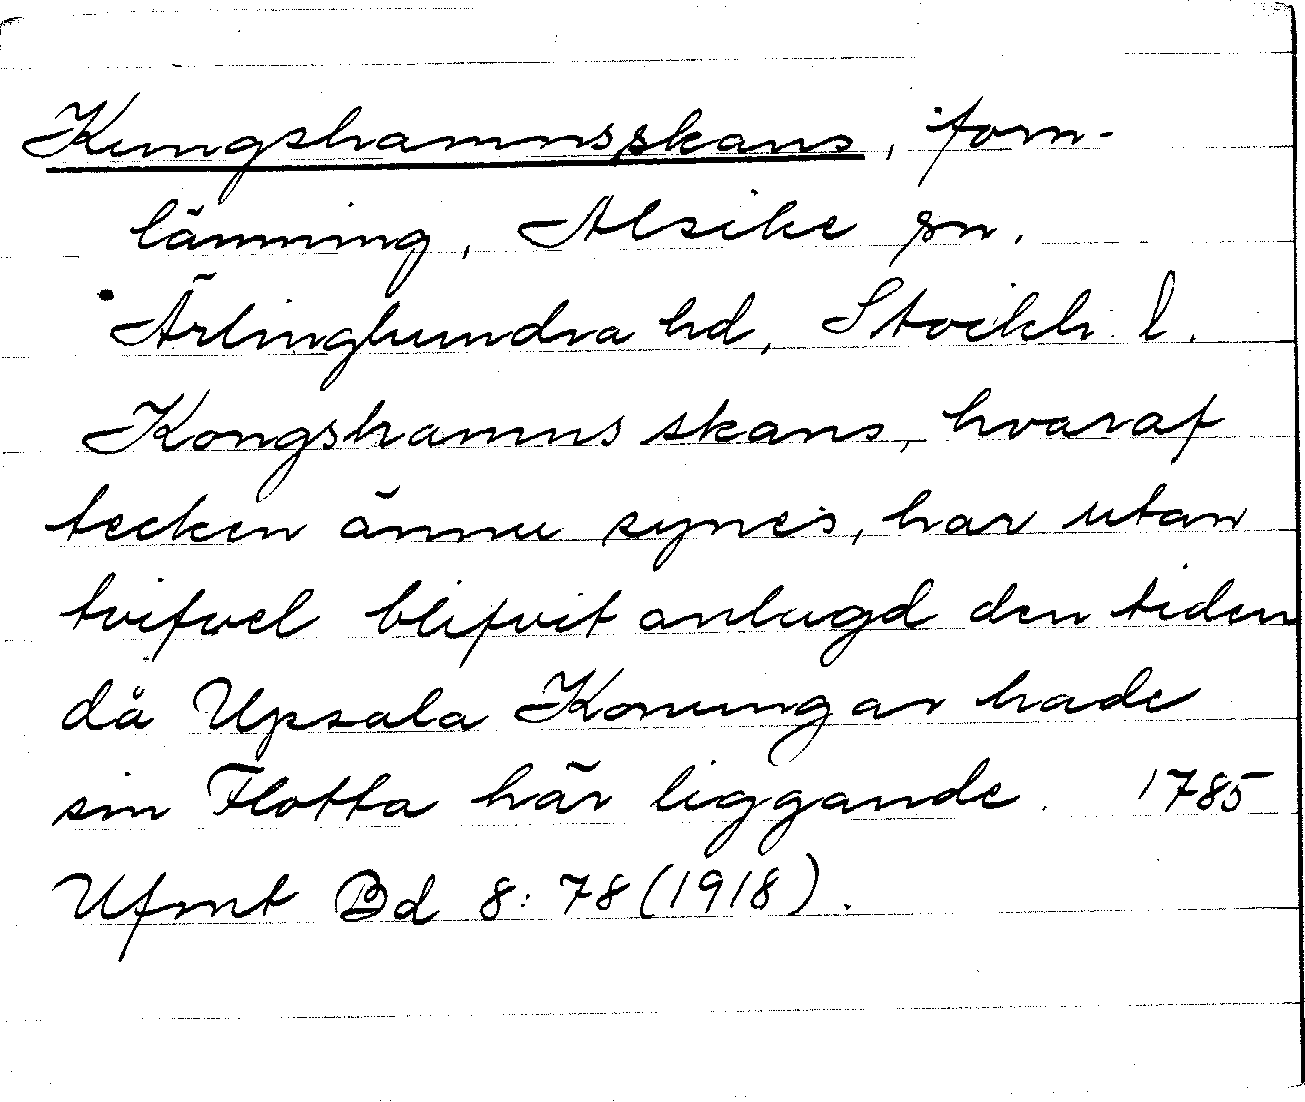 Kungshamnsskans, forn-
lämning, Alsike sn.
Ärlinghundra hd, Stockh. l.
Kongshamns skans, hvaraf
tecken ännu synes, har utan
tvifvel blifvit anlagd den tiden
då Upsala Konungar hade
sin Flotta här liggande. 1785
Ufmt Bd 8: 78 (1918).